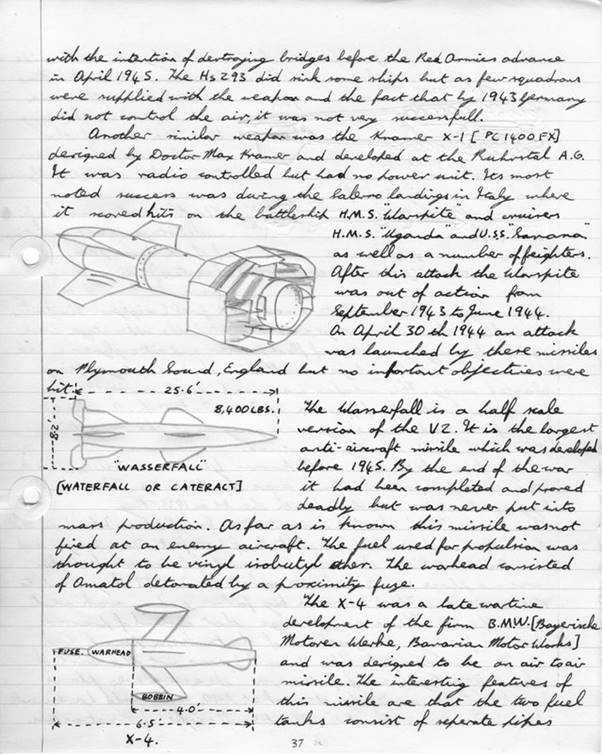 with the intention of destroying bridges before the Red Armies advance
in April 1945. The Hs 293 did sink some ships but as few squadrons
were supplied with the weapon and the fact that by 1943 Germany
did not control the air, it was not very successfull.
Another similar weapon was the Kramer X-1 [PC 1400 FX]
designed by Doctor Max Kramer and developed at the Ruhrstal A.G.
It was radio controlled but had no power unit. Its most
noted success was during the Salerno landings in Italy where
it scored hits on the battleship H.M.S. "Warspite" and cruisers
H.M.S. "Uganda" and U.S.S. "Savanna"
as well as a number of freighters.
After this attack the Warspite
was out of action from
September 1943 to June 1944.
On April 30th 1944 an attack
was launched by these missiles
on Plymouth Sound, England but no important objectives were
hit.
25·6'
8,400 LBS.
8·2'
"WASSERFALL"
[WATERFALL OR CATERACT]
The Wasserfall is a half scale
version of the V2. It is the largest
anti-aircraft missile which was developed
before 1945. By the end of the war
it had been completed and proved
deadly but was never put into
mass production. As far as is known this missile was not
fired at an enemy aircraft. The fuel used for propulsion was
thought to be vinyl isobutyl ether. The warhead consisted
of Amatol detonated by a proximity fuse.
The X-4 was a late wartime
development of the firm B.M.W. [Bayerische
Motoren Werke, Bavarian Motor Works]
and was designed to be an air to air
missile. The interesting features of
this missile are that the two fuel
tanks consist of seperate pipes
FUSE. WARHEAD
BOBBIN
4·0'
6·5'
X-4.
37